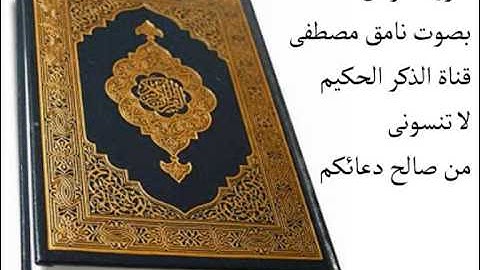 بصوت نامق مصطفى
قناة الذكر الحكيم
لا تنسونى
من صالح دعائكم
القرآن الكريم